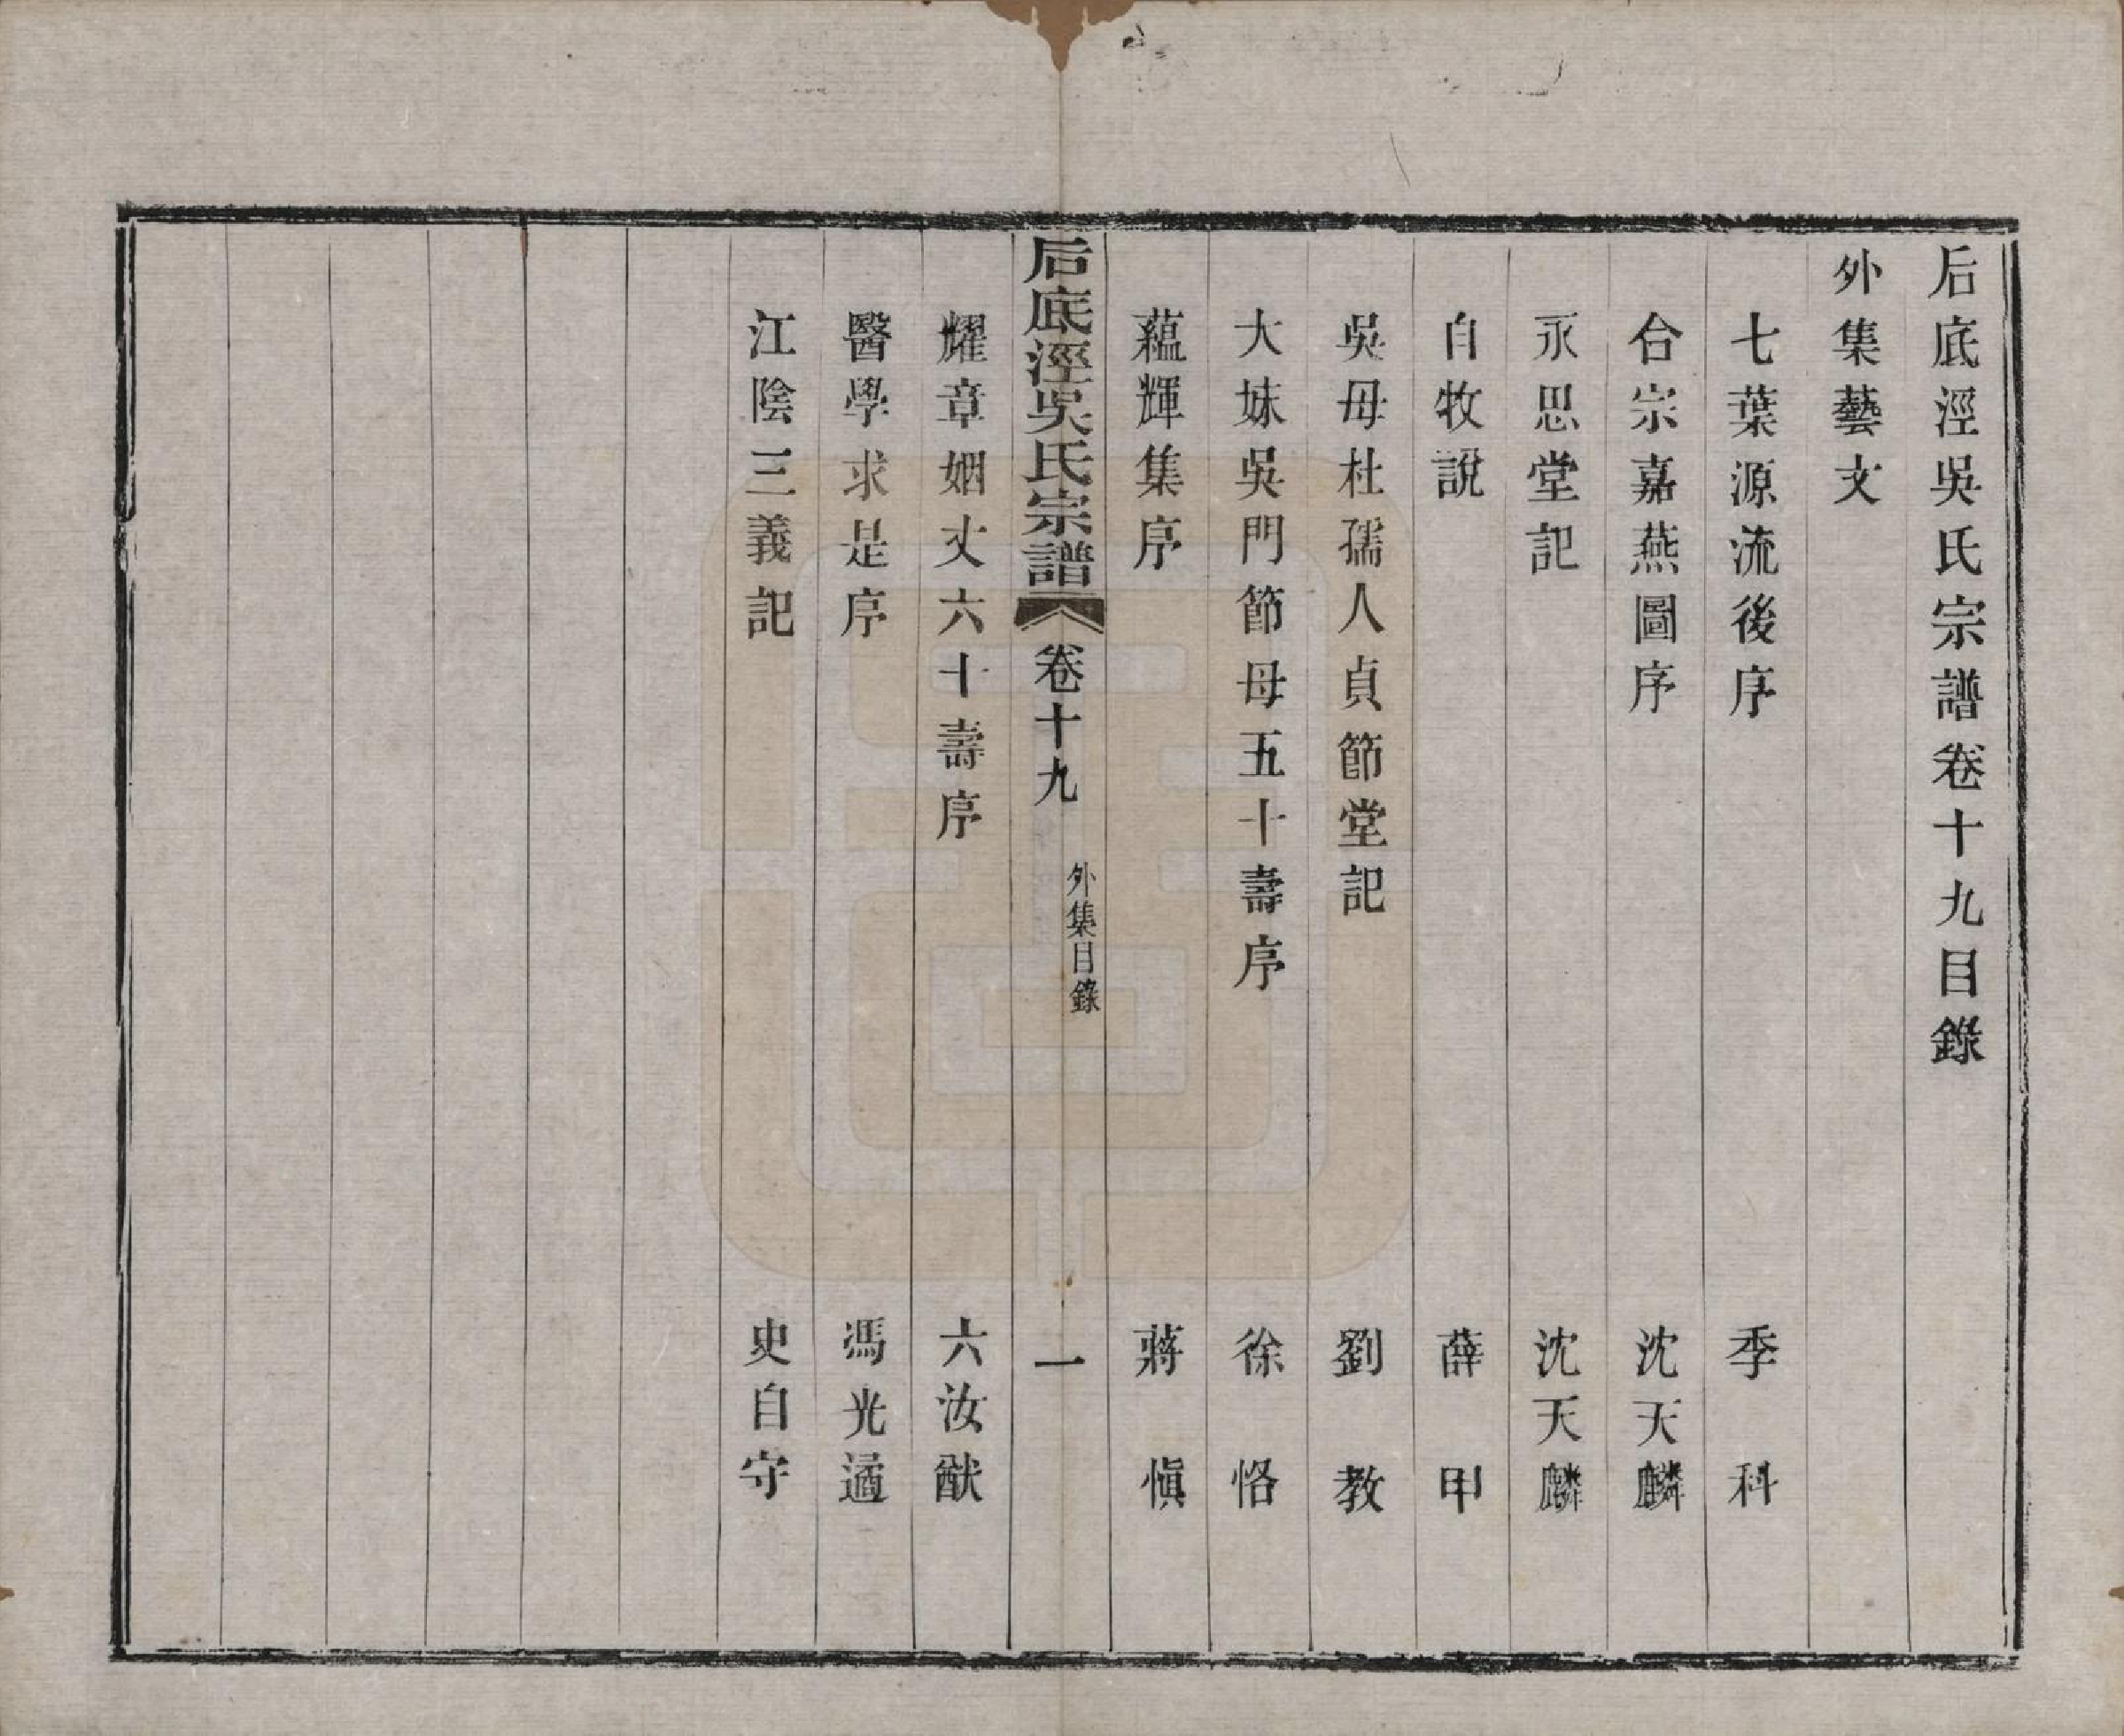 后底涇吳氏宗譜卷十九目錄
外集藝文
七葉源流後序 季科
合宗嘉燕圖序 沈天麟
永思堂記 沈天麟
自牧說 薛甲
吳母杜孺人貞節堂記 劉教
大妹吳門節母五十壽序 徐恪
蘊輝集序 蔣慎
后底涇吳氏宗譜 卷十九 外集目錄 一
耀章姻丈六十壽序 六汝猷
醫學求是序 馮光遹
江陰三義記 史自守